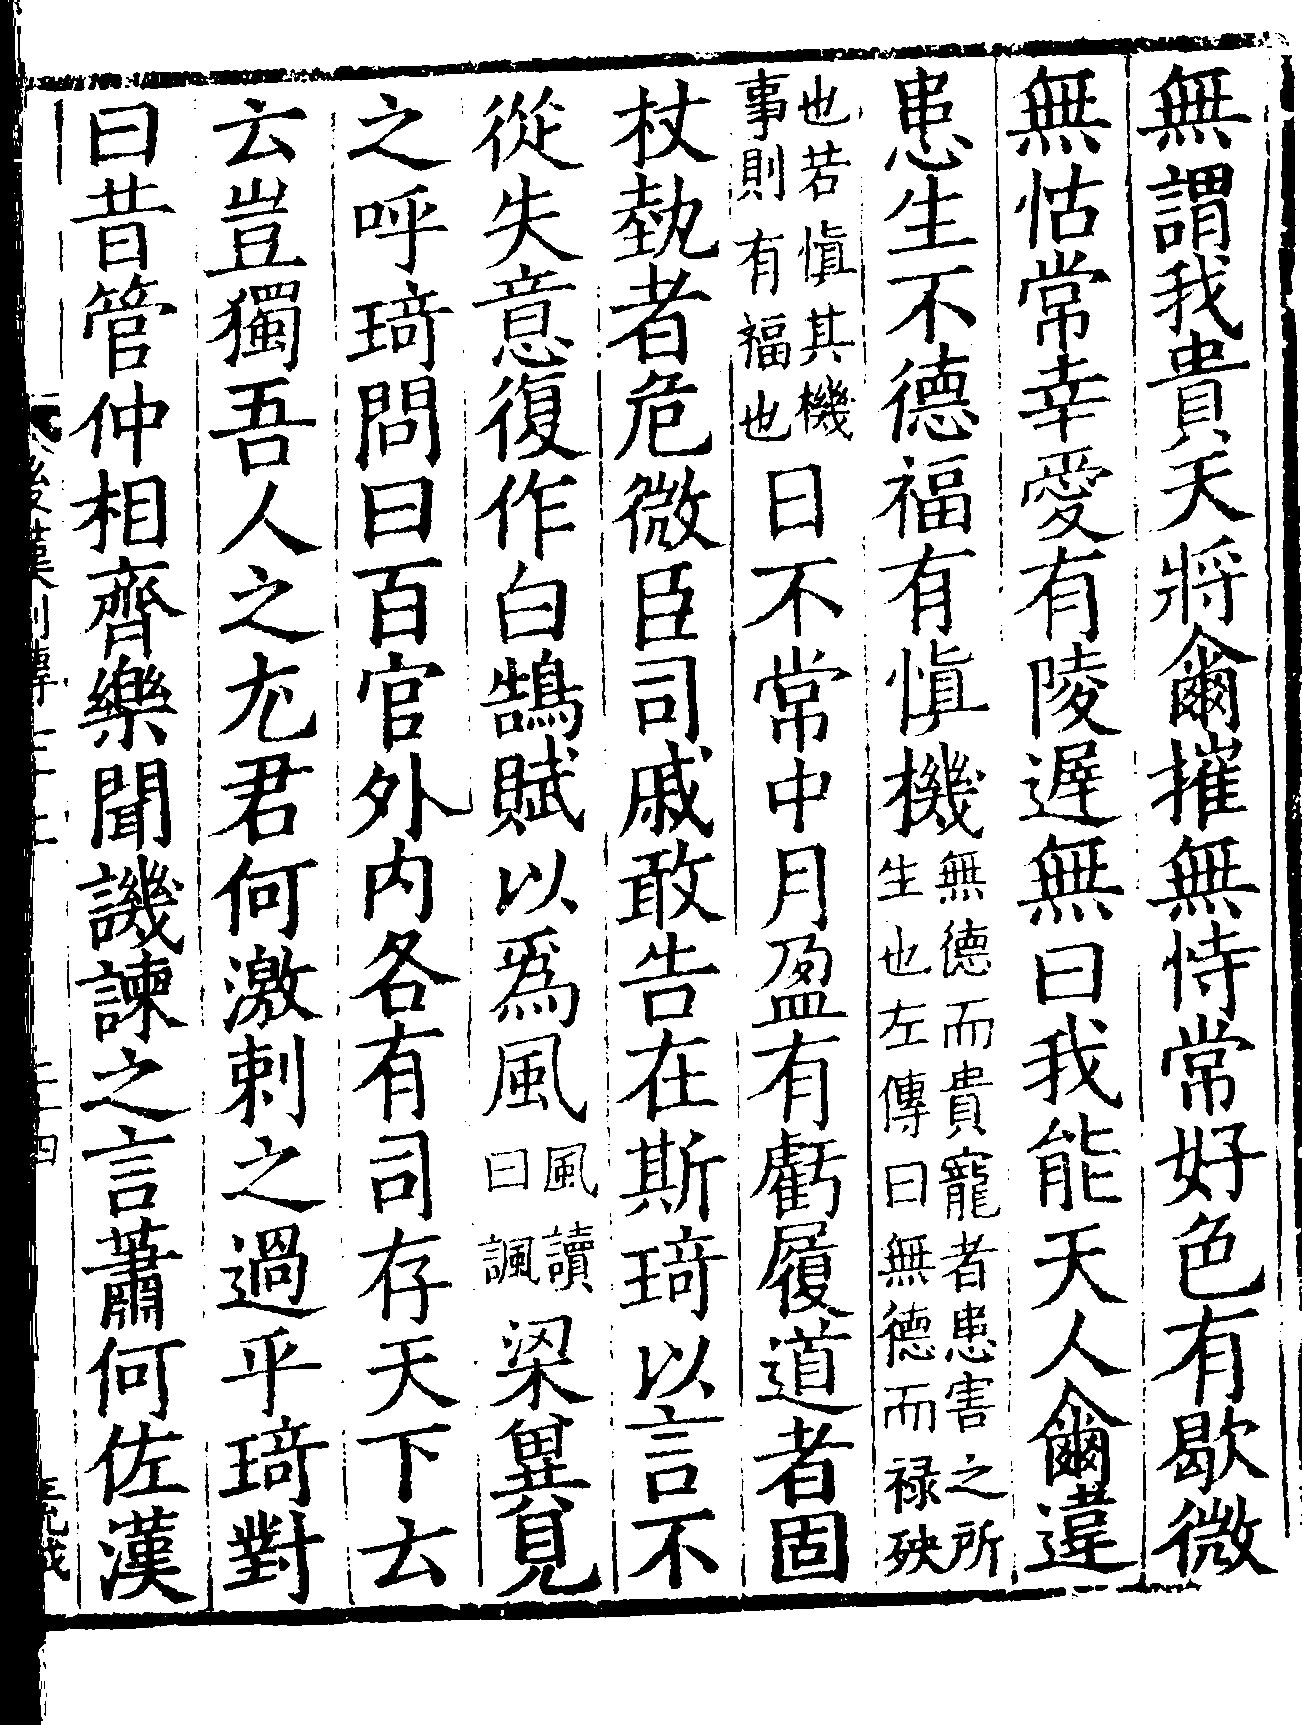 無謂我貴天將爾摧無恃常好色有歇微
無怙常幸愛有陵遲無曰我能天人爾違
患生不德福有愼機
無德而貴寵者患害之所
生也左傳曰無德而禄殃
也若愼其機
事則有福也
日不常中月盈有虧履道者固
杖埶者危微臣司戚敢告在斯琦以言不
從失意復作白鵠賦以爲風
風讀
曰諷
梁冀見
之呼琦問曰百官外内各有司存天下云
云豈獨吾人之尤君何激刺之過乎琦對
曰昔管仲相齊樂聞譏諫之言蕭何佐漢